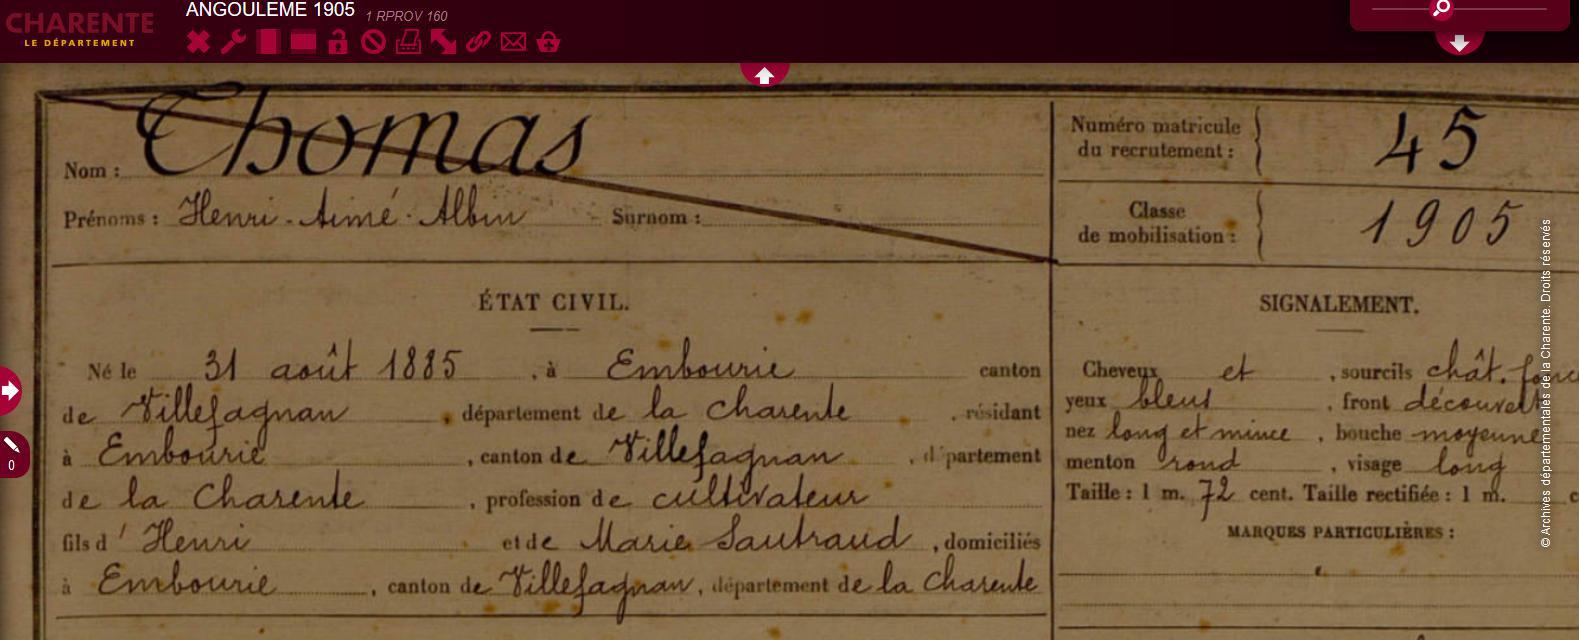 CHARENTE
LE DÉPARTEMENT
ANGOULEME 1905 1 RPROV 160
Nom : Thomas
Prénoms : Henri-Aimé-Albin Surnom :
Numéro matricule
du recrutement : 45
Classe
de mobilisation : 1905
ÉTAT CIVIL.
Né le 31 août 1885, à Embourie canton
de Villefagnan, département de la Charente, résidant
à Embourie, canton de Villefagnan, département
de la Charente, profession de cultivateur
fils d'Henri et de Marie Sautraud, domiciliés
à Embourie, canton de Villefagnan, département de la Charente
SIGNALEMENT.
Cheveux et, sourcils chât. fonc
yeux bleus, front découvert
nez long et mince, bouche moyenne
menton rond, visage long
Taille : 1 m. 72 cent. Taille rectifiée : 1 m. c
MARQUES PARTICULIÈRES :
© Archives départementales de la Charente. Droits réservés
0